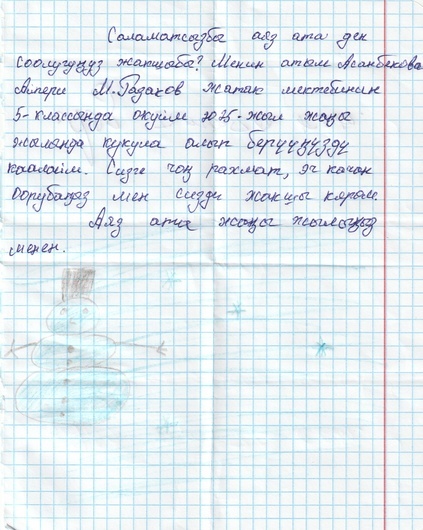 Саламатсызбы аяз ата ден
соолугуңуз жакшыбы? Менин атым Асанбекова
Алтери М.Раззаков жатак мектебинин
5-классында окуйм 2025-жыл жаңы
жылында кукула алып берүүңүздү
каалайм. Сизге чоң рахмат, эч качан
оорубаңыз мен сизди жакшы көрөм.
Аяз ата жаңы жылыңыз
менен.